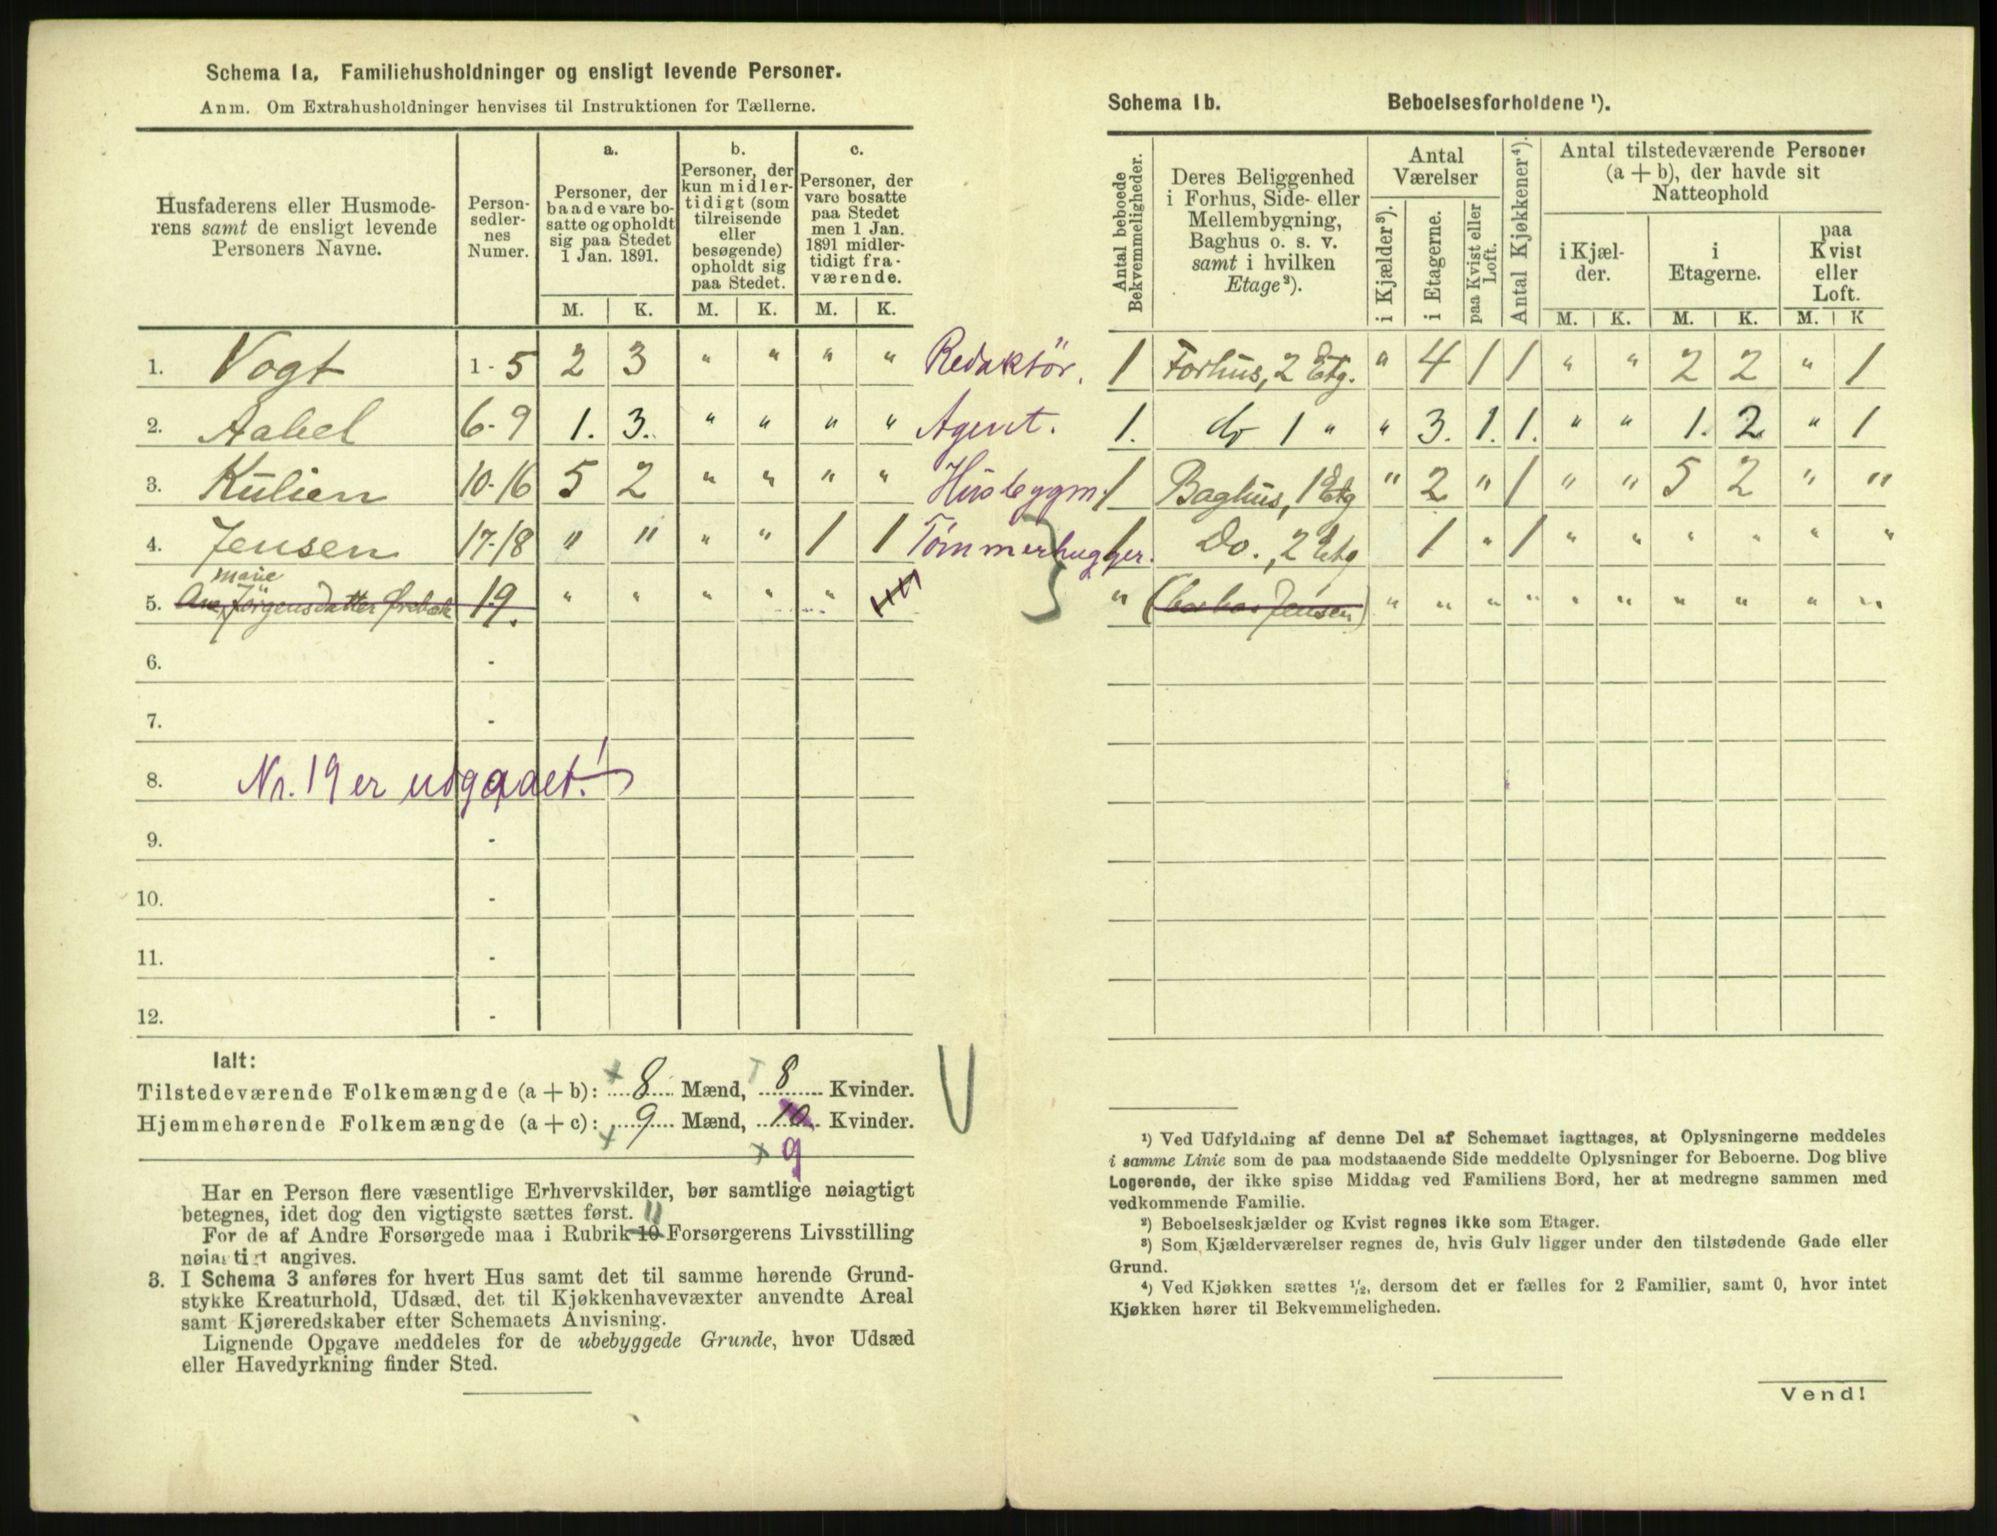 Schema 1a, Familiehusholdninger og ensligt levende Personer.
Anm. Om Extrahusholdninger henvises til Instruktionen for Tællerne.
Husfaderens eller Husmoderens samt de ensligt levende Personers Navne. | Person-sedler-nes Numer. | a. Personer, der baade vare bosatte og opholdt sig paa Stedet 1 Jan. 1891. | b. Personer, der kun midlertidigt (som tilreisende eller besøgende) opholdt sig paa Stedet. | c. Personer, der vare bosatte paa Stedet men 1 Jan. 1891 midlertidigt fraværende.
M. K. M. K. M. K.
1. Vogt 1-5 2 3 " " " " Redaktör.
2. Aabel 6-9 1. 3. " " " " Agent.
3. Kulien 10-16 5 2 " " " " Husbeygm.
4. Jensen 17-18 " " " " 1 1 Tømmerhugger.
marie
5. Ane Jörgensdatter 19. " " " " "
6. -
7. -
8. Nr. 19 er udgaaet!
9. -
10. -
11. -
12. -
Ialt:
Tilstedeværende Folkemængde (a + b): 8 Mænd, 8 Kvinder.
Hjemmehørende Folkemængde (a + c): 9 Mænd, 10 Kvinder.
9
Har en Person flere væsentlige Erhvervskilder, bør samtlige nøiagtigt
betegnes, idet dog den vigtigste sættes først.
11
For de af Andre Forsørgede maa i Rubrik 10 Forsørgerens Livsstilling
nøiagtigt angives.
3. I Schema 3 anføres for hvert Hus samt det til samme hørende Grund-
stykke Kreaturhold, Udsæd, det til Kjøkkenhavevæxter anvendte Areal
samt Kjøreredskaber efter Schemaets Anvisning.
Lignende Opgave meddeles for de ubebyggede Grunde, hvor Udsæd
eller Havedyrkning finder Sted.
Schema 1b. Beboelsesforholdene ¹).
Antal beboede Bekvemmeligheder. | Deres Beliggenhed i Forhus, Side- eller Mellembygning, Baghus o. s. v. samt i hvilken Etage²). | Antal Værelser | i Kjælder³). | i Etagerne. | paa Kvist eller Loft. | Antal Kjøkkener⁴). | Antal tilstedeværende Personer (a + b), der havde sit Natteophold | i Kjælder. | i Etagerne. | paa Kvist eller Loft.
M. K. M. K. M. K
1 Forhus, 2 Etg. " 4 1 1 " " 2 2 " 1
1. do 1 " " 3. 1. 1. " " 1. 2 " 1
1 Baghus, 1 Etg " 2 " 1 " " 5 2 " "
1 Do., 2 Etg 1 " 1 " " " " " "
" (hos Jensen) " " " " " " " " " "
¹) Ved Udfyldning af denne Del af Schemaet iagttages, at Oplysningerne meddeles
i samme Linie som de paa modstaaende Side meddelte Oplysninger for Beboerne. Dog blive
Logerende, der ikke spise Middag ved Familiens Bord, her at medregne sammen med
vedkommende Familie.
²) Beboelseskjælder og Kvist regnes ikke som Etager.
³) Som Kjælderværelser regnes de, hvis Gulv ligger under den tilstødende Gade eller
Grund.
⁴) Ved Kjøkken sættes ½, dersom det er fælles for 2 Familier, samt 0, hvor intet
Kjøkken hører til Bekvemmeligheden.
Vend!